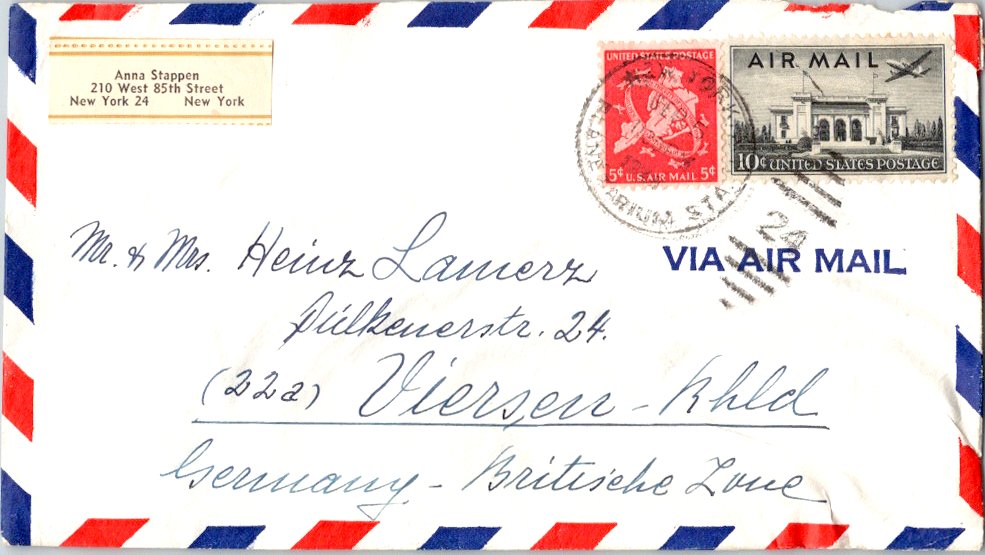 Anna Stappen
210 West 85th Street
New York 24 New York
UNITED STATES POSTAGE
5¢ U.S. AIR MAIL 5¢
AIR MAIL
10¢ UNITED STATES POSTAGE
NEW YORK, N.Y.
PLANETARIUM STA.
24
VIA AIR MAIL
Mr. & Mrs. Heinz Lamerz
Dülkenerstr. 24.
(22a) Viersen - Rhld
Germany - Britische Zone